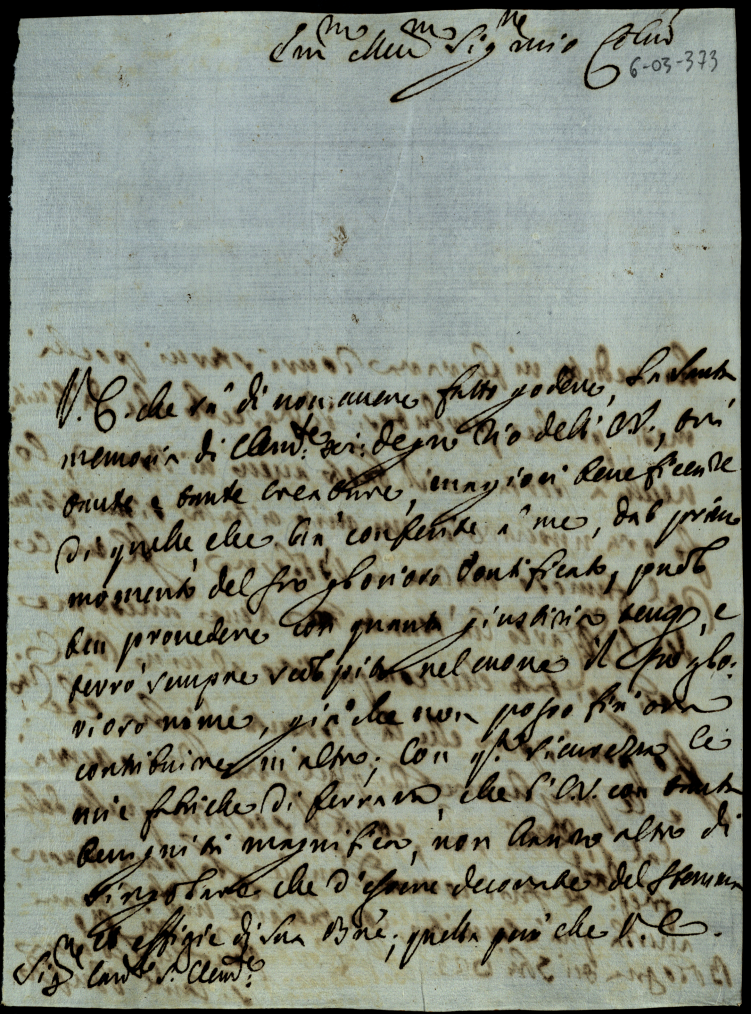 Em.mo e Rev.mo Sig.re mio Col.mo
6-03-373
V. E. che sà di non avere fatto godere, la Santa
memoria di Clem.te XI: degno Zio dell' E.V., trà
tante e tante creature, maggiori beneficenze
di quelle che hà conferite à me, dal primo
momento del suo glorioso Pontificato, può
ben provedere con quanta giustizia tengo, e
terrò sempre scolpito nel cuore il suo glo-
rioso nome, già che non posso fin' ora
contribuire in altro; Con q.ta sicurezza le
mie fabriche di ferrara, che l' E.V. con tanta
benignità magnifica, non hanno altro di
singolare che d'essere decorate del stemma
et effigie di Sua B.ne; quella però che V E.
Sig.re Card.le S. Clem.te